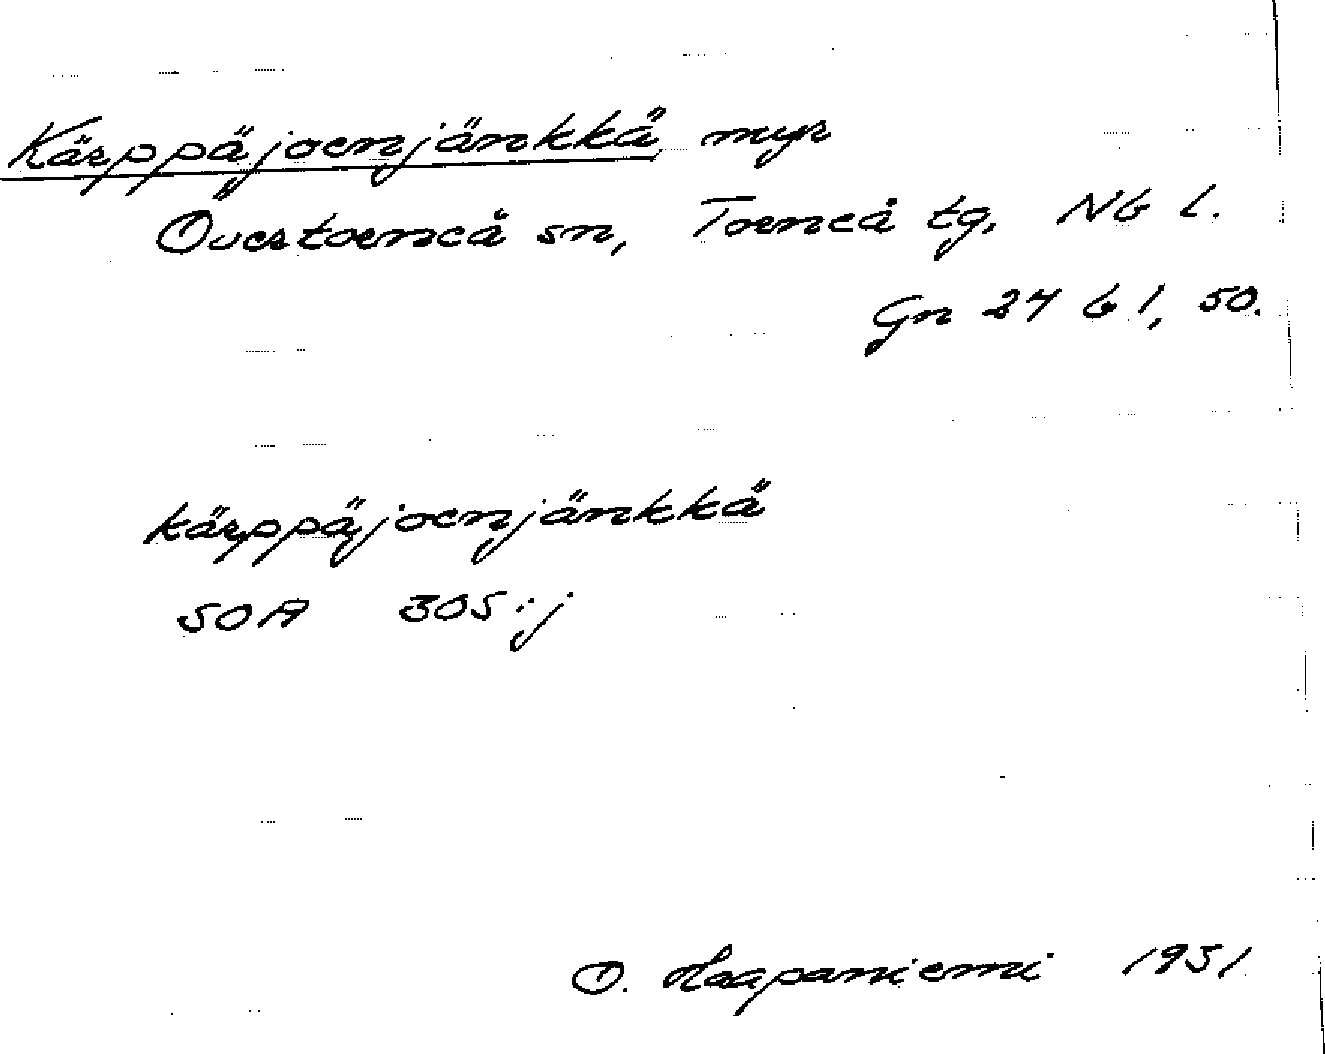 Kärppäjoenjänkkä, myr
Övertorneå sn, Torneå tg, Nb l.
Gn 24 b 1, 50.
kärppäjoenjänkkä
SOA 305:j
O. Haapaniemi 1951